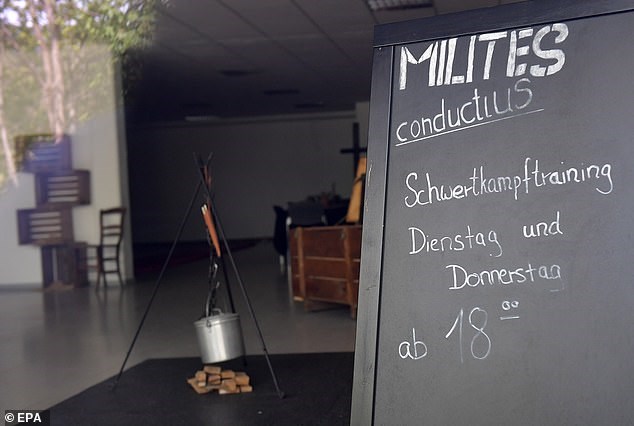 MILITES
conductius
Schwertkampftraining
Dienstag und
Donnerstag
ab 18⁰⁰
© EPA